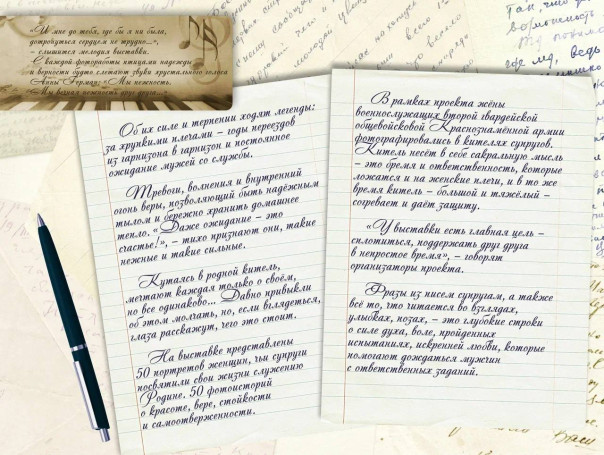 «И мне до тебя, где бы я ни была,
дотронуться сердцем не трудно...»,
– слышится мелодия выставки.
С каждой фотоработы птицами надежды
и верности будто слетают звуки хрустального голоса
Анны Герман: «Мы нежность.
Мы вдыхаем нежность друг друга...».
Об их силе и терпении ходят легенды:
за хрупкими плечами – годы переездов
из гарнизона в гарнизон и постоянное
ожидание мужей со службы.
Тревоги, волнения и внутренний
огонь веры, позволяющий быть надёжным
тылом и бережно хранить домашнее
тепло. « Даже ожидание – это
счастье!», – тихо признают они, такие
нежные и такие сильные.
Кутаясь в родной китель,
мечтают каждая только о своём,
но все одинаково... Давно привыкли
об этом молчать, но, если вглядеться,
глаза расскажут, чего это стоит.
На выставке представлены
50 портретов женщин, чьи супруги
посвятили свои жизни служению
Родине. 50 фотоисторий
о красоте, вере, стойкости
и самоотверженности.
В рамках проекта жёны
военнослужащих второй гвардейской
общевойсковой Краснознамённой армии
фотографировались в кителях супругов.
Китель несёт в себе сакральную мысль
– это бремя и ответственность, которые
ложатся и на женские плечи, и в то же
время китель – большой и тяжёлый –
согревает и даёт защиту.
«У выставки есть главная цель –
сплотиться, поддержать друг друга
в непростое время», – говорят
организаторы проекта.
Фразы из писем супругам, а также
всё то, что читается во взглядах,
улыбках, позах, – это глубокие строки
о силе духа, воле, пройденных
испытаниях, искренней любви, которые
помогают дождаться мужчин
с ответственных заданий.